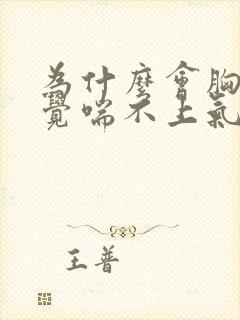 為什麼會胸
覺喘不上氣
王普